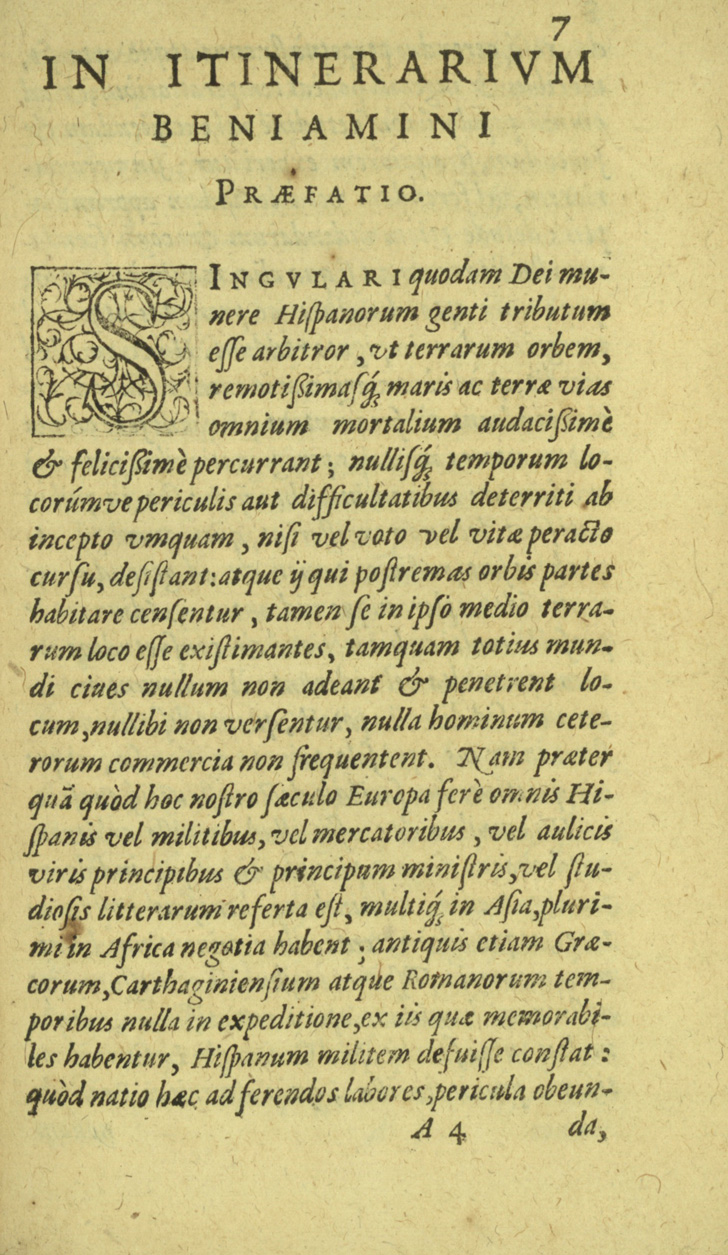 7
IN ITINERARIVM
BENIAMINI
PRÆFATIO.
SINGVLARI quodam Dei mu-
nere Hiſpanorum genti tributum
eſſe arbitror, vt terrarum orbem,
remotißimaſq́; maris ac terræ vias
omnium mortalium audacißimè
& felicißimè percurrant; nulliſq́; temporum lo-
corúmve periculis aut difficultatibus deterriti ab
incepto vmquam, niſi vel voto vel vitæ peracto
curſu, deſiſtant: atque ij qui poſtremas orbis partes
habitare cenſentur, tamen ſe in ipſo medio terra-
rum loco eſſe exiſtimantes, tamquam totius mun-
di ciues nullum non adeant & penetrent lo-
cum, nullibi non verſentur, nulla hominum cete-
rorum commercia non frequentent. Nam præter
quã quòd hoc noſtro ſæculo Europa ferè omnis Hi-
ſpanis vel militibus, vel mercatoribus, vel aulicis
viris principibus & principum miniſtris, vel ſtu-
dioſis litterarum referta eſt, multiq́; in Aſia, pluri-
mi in Africa negotia habent; antiquis etiam Græ-
corum, Carthaginienſium atque Romanorum tem-
poribus nulla in expeditione, ex iis quæ memorabi-
les habentur, Hiſpanum militem defuiſſe conſtat:
quòd natio hæc ad ferendos labores, pericula obeun-
A 4 da,